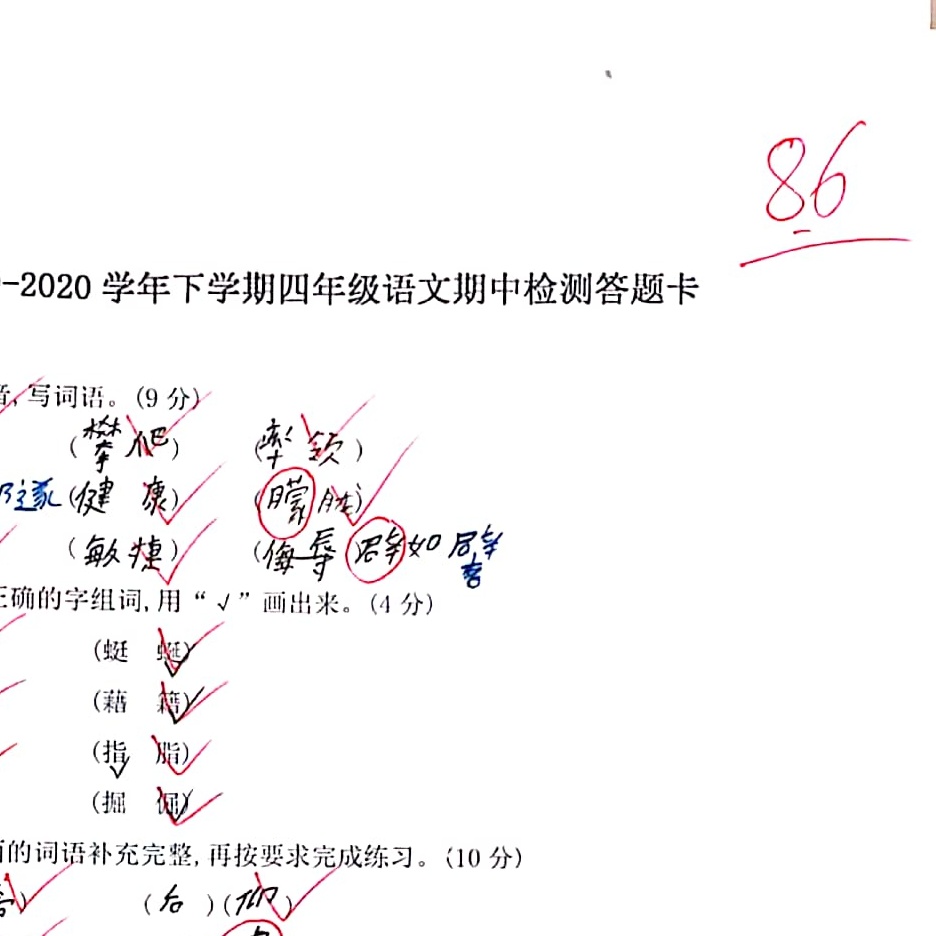 86
-2020 学年下学期四年级语文期中检测答题卡
音,写词语。(9 分)
(攀爬) (率领)
遂(健 康) (朦胧)
(敏捷) (侮辱 如
正确的字组词,用“√”画出来。(4 分)
(蜓 蜒)
(藉 籍)
(指 脂)
(掘 倔)
的词语补充完整,再按要求完成练习。(10 分)
(后 )(仰 )